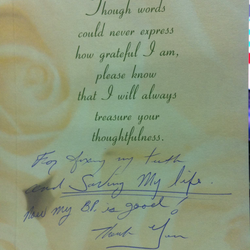 Though words
could never express
how grateful I am,
please know
that I will always
treasure your
thoughtfulness.
For fixing my truth
and Saving My life.
Now my BP. is good!
Thank You